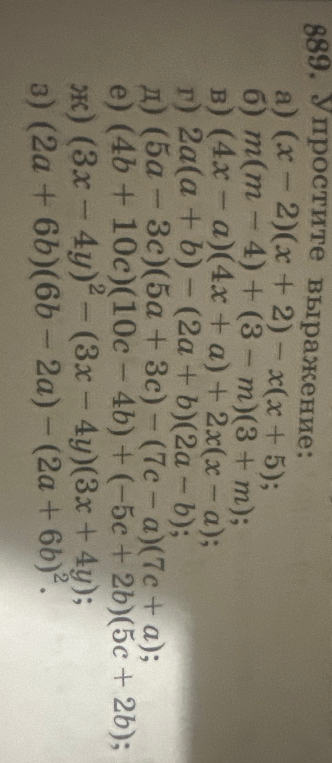 889. Упростите выражение:
а) (x − 2)(x + 2) − x(x + 5);
б) m(m − 4) + (3 − m)(3 + m);
в) (4x − a)(4x + a) + 2x(x − a);
г) 2a(a + b) − (2a + b)(2a − b);
д) (5a − 3c)(5a + 3c) − (7c − a)(7c + a);
е) (4b + 10c)(10c − 4b) + (−5c + 2b)(5c + 2b);
ж) (3x − 4y)² − (3x − 4y)(3x + 4y);
з) (2a + 6b)(6b − 2a) − (2a + 6b)².